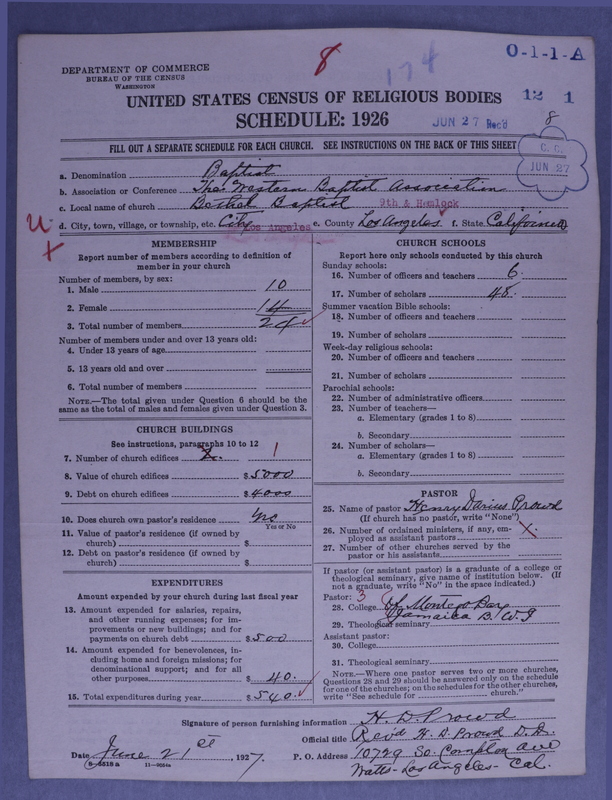 8
174
O-1-1-A
DEPARTMENT OF COMMERCE
BUREAU OF THE CENSUS
WASHINGTON
UNITED STATES CENSUS OF RELIGIOUS BODIES
12 1
SCHEDULE: 1926
JUN 27 Rec'd
8
FILL OUT A SEPARATE SCHEDULE FOR EACH CHURCH. SEE INSTRUCTIONS ON THE BACK OF THIS SHEET
C. C.
JUN 27
a. Denomination Baptist
b. Association or Conference The Western Baptist Association
c. Local name of church Bethel Baptist 9th & Hemlock
d. City, town, village, or township, etc. City Los Angeles e. County Los Angeles f. State California
U.
X
MEMBERSHIP
Report number of members according to definition of
member in your church
Number of members, by sex:
1. Male 10
2. Female 14
3. Total number of members 24
Number of members under and over 13 years old:
4. Under 13 years of age
5. 13 years old and over
6. Total number of members
NOTE.—The total given under Question 6 should be the
same as the total of males and females given under Question 3.
CHURCH BUILDINGS
See instructions, paragraphs 10 to 12
7. Number of church edifices 1
8. Value of church edifices $5000
9. Debt on church edifices $4000
10. Does church own pastor's residence No
Yes or No
11. Value of pastor's residence (if owned by
church) $
12. Debt on pastor's residence (if owned by
church) $
EXPENDITURES
Amount expended by your church during last fiscal year
13. Amount expended for salaries, repairs,
and other running expenses; for im-
provements or new buildings; and for
payments on church debt $500
14. Amount expended for benevolences, in-
cluding home and foreign missions; for
denominational support; and for all
other purposes $ 40.
15. Total expenditures during year $540.
CHURCH SCHOOLS
Report here only schools conducted by this church
Sunday schools:
16. Number of officers and teachers 6.
17. Number of scholars 48.
Summer vacation Bible schools:
18. Number of officers and teachers
19. Number of scholars
Week-day religious schools:
20. Number of officers and teachers
21. Number of scholars
Parochial schools:
22. Number of administrative officers
23. Number of teachers—
a. Elementary (grades 1 to 8)
b. Secondary
24. Number of scholars—
a. Elementary (grades 1 to 8)
b. Secondary
PASTOR
25. Name of pastor Henry Darius Prowd
(If church has no pastor, write "None")
26. Number of ordained ministers, if any, em-
ployed as assistant pastors X.
27. Number of other churches served by the
pastor or his assistants
If pastor (or assistant pastor) is a graduate of a college or
theological seminary, give name of institution below. (If
not a graduate, write "No" in the space indicated.)
Pastor: 3
28. College Of Montego Bay
29. Theological seminary Jamaica B. W. I
Assistant pastor:
30. College
31. Theological seminary
NOTE.—Where one pastor serves two or more churches,
Questions 28 and 29 should be answered only on the schedule
for one of the churches; on the schedules for the other churches,
write "See schedule for church."
Signature of person furnishing information H. D. Prowd
Official title Rev'd H. D. Prowd D.D.
Date June 21st, 1927.
P. O. Address 10729 So. Compton Ave
Watts-Los Angeles- Cal.
8-5518 a 11-9054a